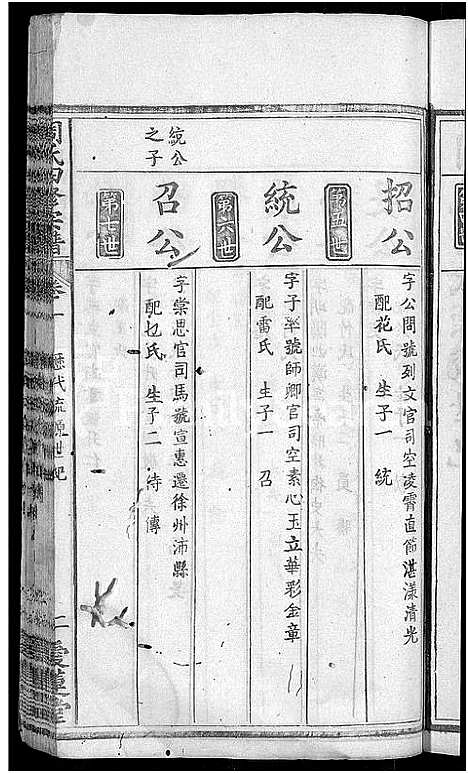 第五世
招公
字公問號列文官司空凌霄直節湛漾清光
配花氏 生子一 統
第六世
統公
字子率號師卿官司空素心玉立華彩金章
配雷氏 生子一 召
統公
之子
第七世
召公
字棠思官司馬號宣惠遷徐州沛縣
配乜氏 生子二 待 傳
周氏四修宗譜
卷一 歷代流源世紀
愛蓮堂